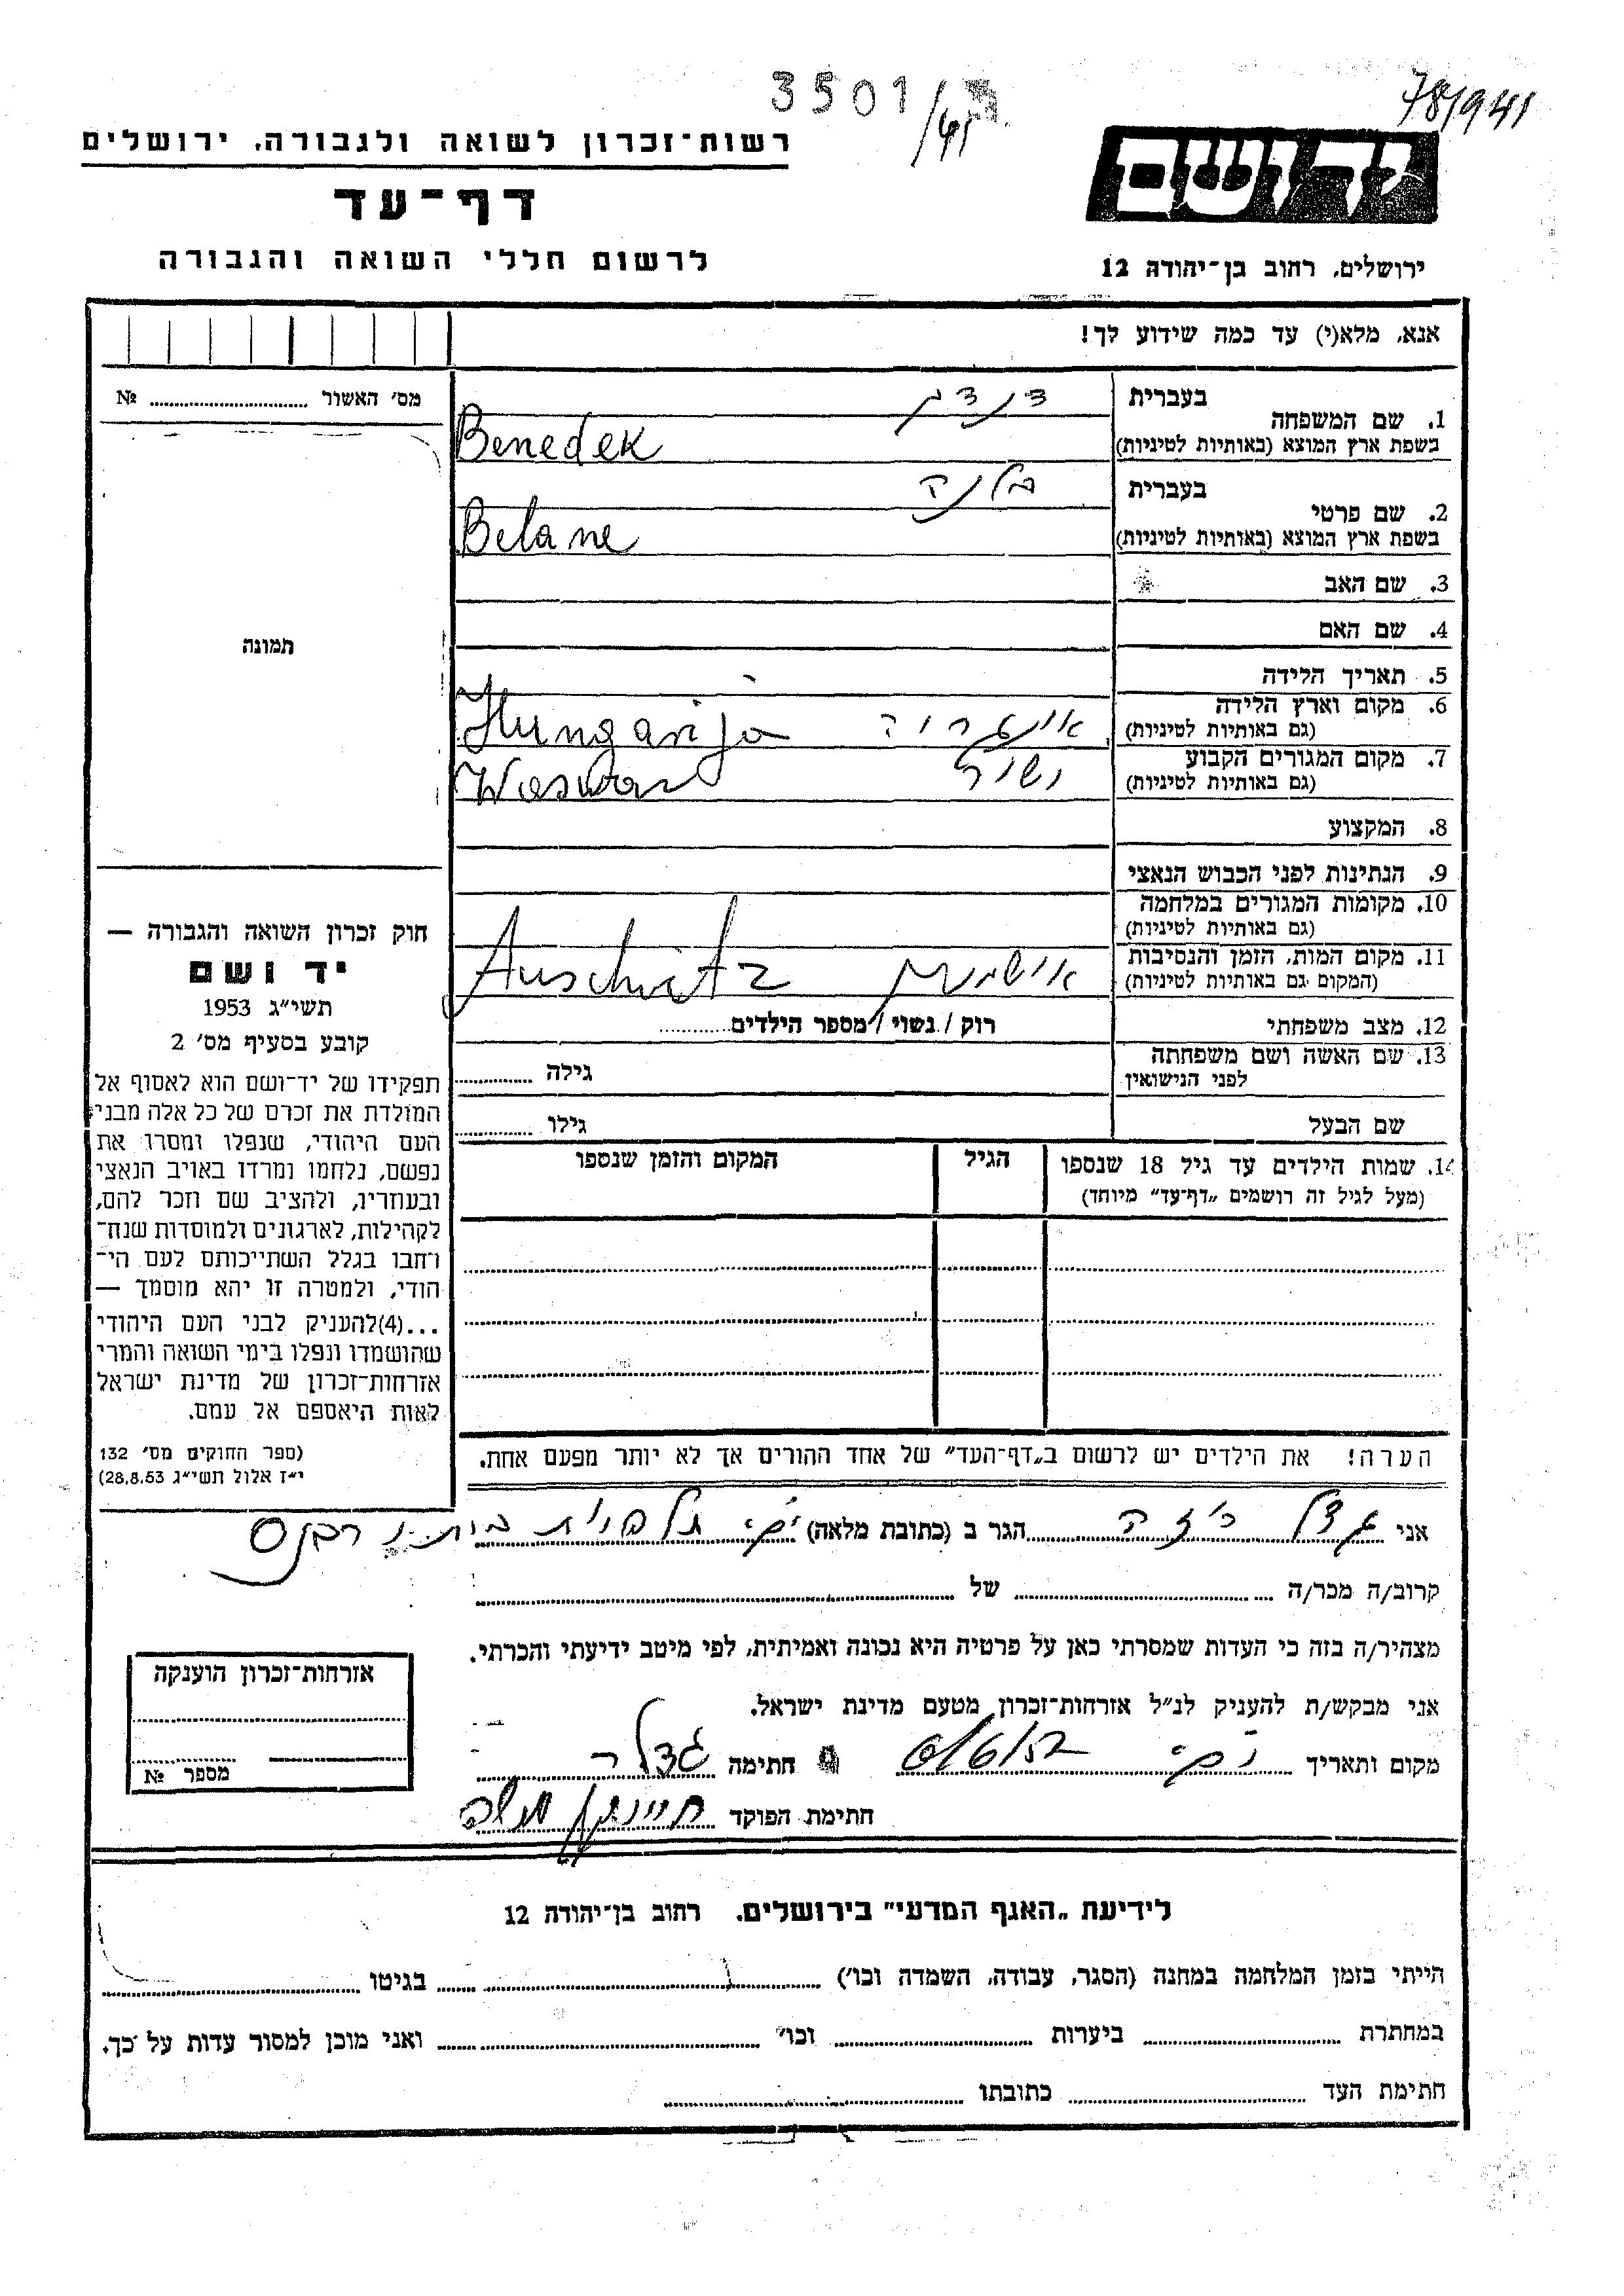 3501/41
78/941
רשות־זכרון לשואה ולגבורה, ירושלים
דף־עד
לרשום חללי השואה והגבורה
יד ושם
ירושלים, רחוב בן־יהודה 12
אנא, מלא(י) עד כמה שידוע לך!
מס׳ האשור № ..........
בעברית
1. שם המשפחה
בשפת ארץ המוצא (באותיות לטיניות)
Benedek
בעברית בלנה
2. שם פרטי
בשפת ארץ המוצא (באותיות לטיניות)
Belane
3. שם האב
4. שם האם
תמונה
5. תאריך הלידה
6. מקום וארץ הלידה
(גם באותיות לטיניות)
Hungarija
7. מקום המגורים הקבוע
(גם באותיות לטיניות)
8. המקצוע
9. הנתינות לפני הכבוש הנאצי
10. מקומות המגורים במלחמה
(גם באותיות לטיניות)
11. מקום המות, הזמן והנסיבות
(המקום גם באותיות לטיניות)
Auschwitz
12. מצב משפחתי רוק / נשוי / מספר הילדים ..........
13. שם האשה ושם משפחתה
לפני הנישואין
גילה ..........
שם הבעל גילו ..........
14. שמות הילדים עד גיל 18 שנספו
(מעל לגיל זה רושמים „דף־עד” מיוחד)
הגיל
המקום והזמן שנספו
הערה! את הילדים יש לרשום ב„דף־העד” של אחד ההורים אך לא יותר מפעם אחת.
חוק זכרון השואה והגבורה —
יד ושם
תשי״ג 1953
קובע בסעיף מס׳ 2
תפקידו של יד־ושם הוא לאסוף אל
המולדת את זכרם של כל אלה מבני
העם היהודי, שנפלו ומסרו את
נפשם, נלחמו ומרדו באויב הנאצי
ובעוזריו, ולהציב שם וזכר להם,
לקהילות, לארגונים ולמוסדות שנח־
רבו בגלל השתייכותם לעם הי־
הודי, ולמטרה זו יהא מוסמך —
...(4)להעניק לבני העם היהודי
שהושמדו ונפלו בימי השואה והמרי
אזרחות־זכרון של מדינת ישראל
לאות היאספם אל עמם.
(ספר החוקים מס׳ 132
י״ז אלול תשי״ג 28.8.53)
אני הגר ב (כתובת מלאה)
קרוב/ה מכר/ה .......... של ..........
מצהיר/ה בזה כי העדות שמסרתי כאן על פרטיה היא נכונה ואמיתית, לפי מיטב ידיעתי והכרתי.
אני מבקש/ת להעניק לנ״ל אזרחות־זכרון מטעם מדינת ישראל.
מקום ותאריך חתימה
חתימת הפוקד
אזרחות־זכרון הוענקה
מספר №
לידיעת „האגף המדעי” בירושלים, רחוב בן־יהודה 12
הייתי בזמן המלחמה במחנה (הסגר, עבודה, השמדה וכו׳) .......... בגיטו ..........
במחתרת .......... ביערות .......... וכו׳ .......... ואני מוכן למסור עדות על כך.
חתימת העד .......... כתובתו ..........